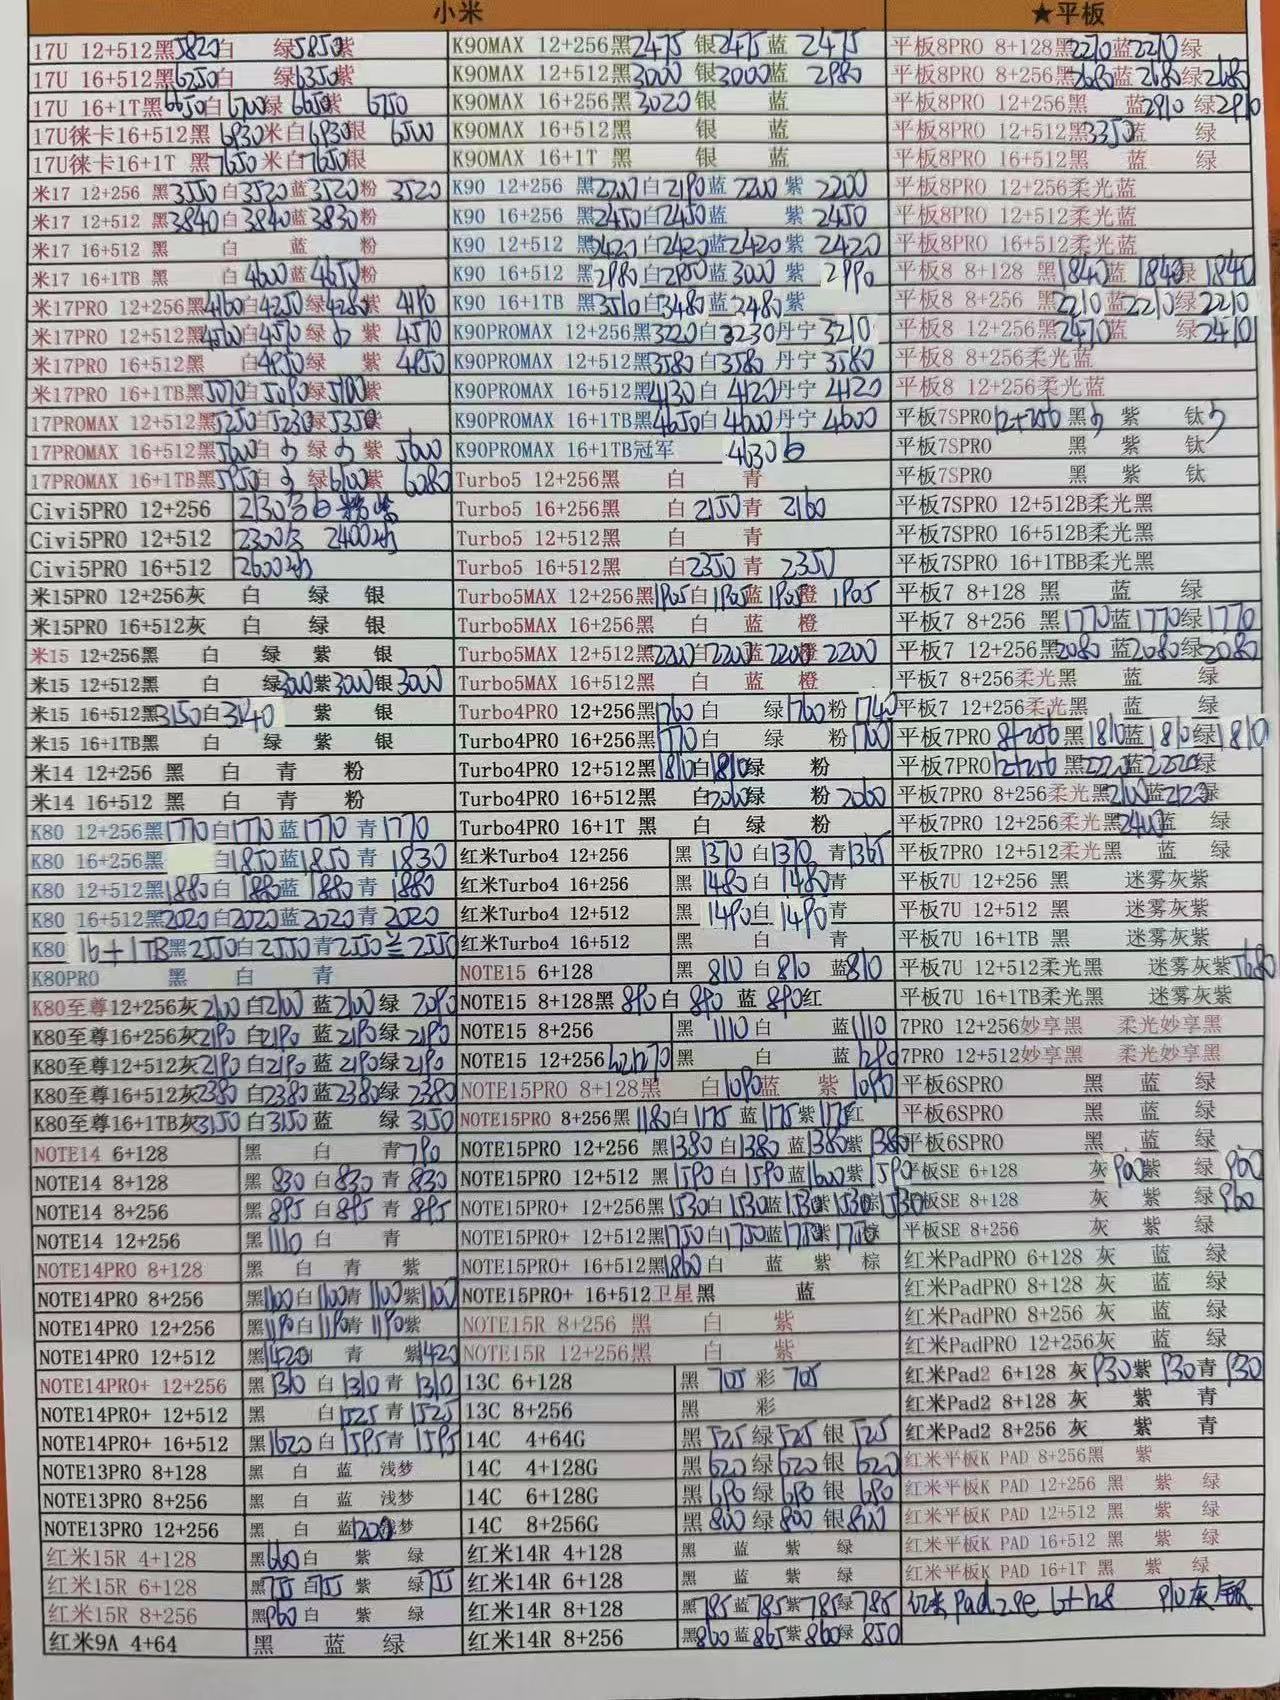 小米
17U 12+512黑5820白 绿5850紫
17U 16+512黑6250白 绿6350紫
17U 16+1T黑6650白6700绿 6650紫 6750
17U徕卡16+512黑 6930米白6930银 6500
17U徕卡16+1T 黑7650米白7650银
米17 12+256 黑3550白3520蓝3520粉 3520
米17 12+512 黑3840白3840蓝3830粉
米17 16+512 黑 白 蓝 粉
米17 16+1TB 黑 白4600蓝4650粉
米17PRO 12+256黑4160白4250绿4280紫 4190
米17PRO 12+512黑4560白4570绿 紫 4570
米17PRO 16+512黑 白4950绿 紫 4950
米17PRO 16+1TB黑5070白5090绿5100紫
17PROMAX 12+512黑5250白5230绿5350紫
17PROMAX 16+512黑5600白 绿 紫 5600
17PROMAX 16+1TB黑5950白 绿6100紫 6080
Civi5PRO 12+256 2130 白 紫
Civi5PRO 12+512 2300 2400
Civi5PRO 16+512 2600
米15PRO 12+256灰 白 绿 银
米15PRO 16+512灰 白 绿 银
米15 12+256黑 白 绿 紫 银
米15 12+512黑 白 绿3000紫3000银3000
米15 16+512黑3150白3140 紫 银
米15 16+1TB黑 白 绿 紫 银
米14 12+256 黑 白 青 粉
米14 16+512 黑 白 青 粉
K80 12+256黑1770白1770蓝1770 青1770
K80 16+256黑 白1850蓝1850青 1830
K80 12+512黑1880白1880蓝1880青 1880
K80 16+512黑2020白2020蓝2020青2020
K80 16+1TB黑2550白2550青2550兰2550
K80PRO 黑 白 青
K80至尊12+256灰2100 白2100 蓝2100绿 2090
K80至尊16+256灰2190 白2190 蓝2190绿 2190
K80至尊12+512灰2190 白2190 蓝2190绿 2190
K80至尊16+512灰2380 白2380 蓝2380绿 2380
K80至尊16+1TB灰3150 白3150 蓝 绿 3150
NOTE14 6+128 黑 白 青790
NOTE14 8+128 黑 830 白830 青 830
NOTE14 8+256 黑 895 白895 青 895
NOTE14 12+256 黑1110 白 青
NOTE14PRO 8+128 黑 白 青 紫
NOTE14PRO 8+256 黑1100白1100青 1100紫1100
NOTE14PRO 12+256 黑1190白1190青 1190紫
NOTE14PRO 12+512 黑1420 青 紫1420
NOTE14PRO+ 12+256 黑1310 白1310青 1310
NOTE14PRO+ 12+512 黑 白1525青1525
NOTE14PRO+ 16+512 黑1620白1595青1595
NOTE13PRO 8+128 黑 白 蓝 浅梦
NOTE13PRO 8+256 黑 白 蓝 浅梦
NOTE13PRO 12+256 黑 白 蓝1200浅梦
红米15R 4+128 黑660白 紫 绿
红米15R 6+128 黑755白755 紫 绿755
红米15R 8+256 黑960白 紫 绿
红米9A 4+64 黑 蓝 绿
K90MAX 12+256黑2475 银2475蓝 2475
K90MAX 12+512黑3000 银3000蓝 2980
K90MAX 16+256黑3020银 蓝
K90MAX 16+512黑 银 蓝
K90MAX 16+1T 黑 银 蓝
K90 12+256 黑2200白2190蓝 2200 紫 2200
K90 16+256 黑2450白2450蓝 紫 2450
K90 12+512 黑2420白2420蓝2420 紫 2420
K90 16+512 黑2980白2950蓝3000 紫 2990
K90 16+1TB 黑3510白3480蓝3480紫
K90PROMAX 12+256黑3220白3230丹宁 3210
K90PROMAX 12+512黑3580白3580 丹宁 3580
K90PROMAX 16+512黑4130白 4120丹宁 4120
K90PROMAX 16+1TB黑4650白4600丹宁 4600
K90PROMAX 16+1TB冠军 4630白
Turbo5 12+256黑 白 青
Turbo5 16+256黑 白2150青 2160
Turbo5 12+512黑 白 青
Turbo5 16+512黑 白2350青 2350
Turbo5MAX 12+256黑1905白1905蓝1905橙 1905
Turbo5MAX 16+256黑 白 蓝 橙
Turbo5MAX 12+512黑2200白2200蓝2200橙 2200
Turbo5MAX 16+512黑 白 蓝 橙
Turbo4PRO 12+256黑1760白 绿1760粉 1740
Turbo4PRO 16+256黑1770白 绿 粉1700
Turbo4PRO 12+512黑1810白1810绿 粉
Turbo4PRO 16+512黑 白2060绿 粉2060
Turbo4PRO 16+1T 黑 白 绿 粉
红米Turbo4 12+256 黑1370白1370青1365
红米Turbo4 16+256 黑1480白1480青
红米Turbo4 12+512 黑1490白1490青
红米Turbo4 16+512 黑 白 青
NOTE15 6+128 黑 810 白810 蓝810
NOTE15 8+128黑 890白 890 蓝 890红
NOTE15 8+256 黑 1110白 蓝1110
NOTE15 12+256 黑 白 蓝1290
NOTE15PRO 8+128黑 白1090蓝 紫 1090
NOTE15PRO 8+256黑 1180白1175 蓝1175紫1175红
NOTE15PRO 12+256 黑1380 白1380 蓝1380紫1380
NOTE15PRO 12+512 黑1590 白1590 蓝1600紫1590
NOTE15PRO+ 12+256黑1530白1530蓝1530紫1530棕1530
NOTE15PRO+ 12+512黑1750白1750蓝1750紫1750棕
NOTE15PRO+ 16+512黑1860白 蓝 紫 棕
NOTE15PRO+ 16+512卫星黑 蓝
NOTE15R 8+256 黑 白 紫
NOTE15R 12+256黑 白 紫
13C 6+128 黑 705 彩 705
13C 8+256 黑 彩
14C 4+64G 黑525绿525银 525
14C 4+128G 黑620绿620银 620
14C 6+128G 黑690绿690银 690
14C 8+256G 黑800绿800银800
红米14R 4+128 黑 蓝 紫 绿
红米14R 6+128 黑 蓝 紫 绿
红米14R 8+128 黑785蓝785紫785绿785
红米14R 8+256 黑860蓝865紫860绿850
★平板
平板8PRO 8+128黑2210蓝2210绿
平板8PRO 8+256黑2680蓝2680绿2680
平板8PRO 12+256黑 蓝2910绿2910
平板8PRO 12+512黑3350蓝 绿
平板8PRO 16+512黑 蓝 绿
平板8PRO 12+256柔光蓝
平板8PRO 12+512柔光蓝
平板8PRO 16+512柔光蓝
平板8 8+128 黑1840蓝1840绿 1840
平板8 8+256 黑2210蓝2210绿2210
平板8 12+256黑2410蓝 绿2410
平板8 8+256柔光蓝
平板8 12+256柔光蓝
平板7SPRO12+256 黑 紫 钛
平板7SPRO 黑 紫 钛
平板7SPRO 黑 紫 钛
平板7SPRO 12+512B柔光黑
平板7SPRO 16+512B柔光黑
平板7SPRO 16+1TBB柔光黑
平板7 8+128 黑 蓝 绿
平板7 8+256 黑1770蓝1770绿1770
平板7 12+256黑2080 蓝2080绿2080
平板7 8+256柔光黑 蓝 绿
平板7 12+256柔光黑 蓝 绿
平板7PRO 8+256黑1810蓝1810绿1810
平板7PRO12+256 黑2220蓝2220绿
平板7PRO 8+256柔光黑2100蓝2120绿
平板7PRO 12+256柔光黑2400蓝 绿
平板7PRO 12+512柔光黑 蓝 绿
平板7U 12+256 黑 迷雾灰紫
平板7U 12+512 黑 迷雾灰紫
平板7U 16+1TB 黑 迷雾灰紫
平板7U 12+512柔光黑 迷雾灰紫5680
平板7U 16+1TB柔光黑 迷雾灰紫
7PRO 12+256妙享黑 柔光妙享黑
7PRO 12+512妙享黑 柔光妙享黑
平板6SPRO 黑 蓝 绿
平板6SPRO 黑 蓝 绿
平板6SPRO 黑 蓝 绿
平板SE 6+128 灰 900紫 绿 900
平板SE 8+128 灰 紫 绿960
平板SE 8+256 灰 紫 绿
红米PadPRO 6+128 灰 蓝 绿
红米PadPRO 8+128灰 蓝 绿
红米PadPRO 8+256灰 蓝 绿
红米PadPRO 12+256灰 蓝 绿
红米Pad2 6+128 灰 930紫 930青 930
红米Pad2 8+128 灰 紫 青
红米Pad2 8+256 灰 紫 青
红米平板K PAD 8+256黑 紫
红米平板K PAD 12+256 黑 紫 绿
红米平板K PAD 12+512 黑 紫 绿
红米平板K PAD 16+512 黑 紫 绿
红米平板K PAD 16+1T 黑 紫 绿
红米Pad2se 6+128 910灰/银